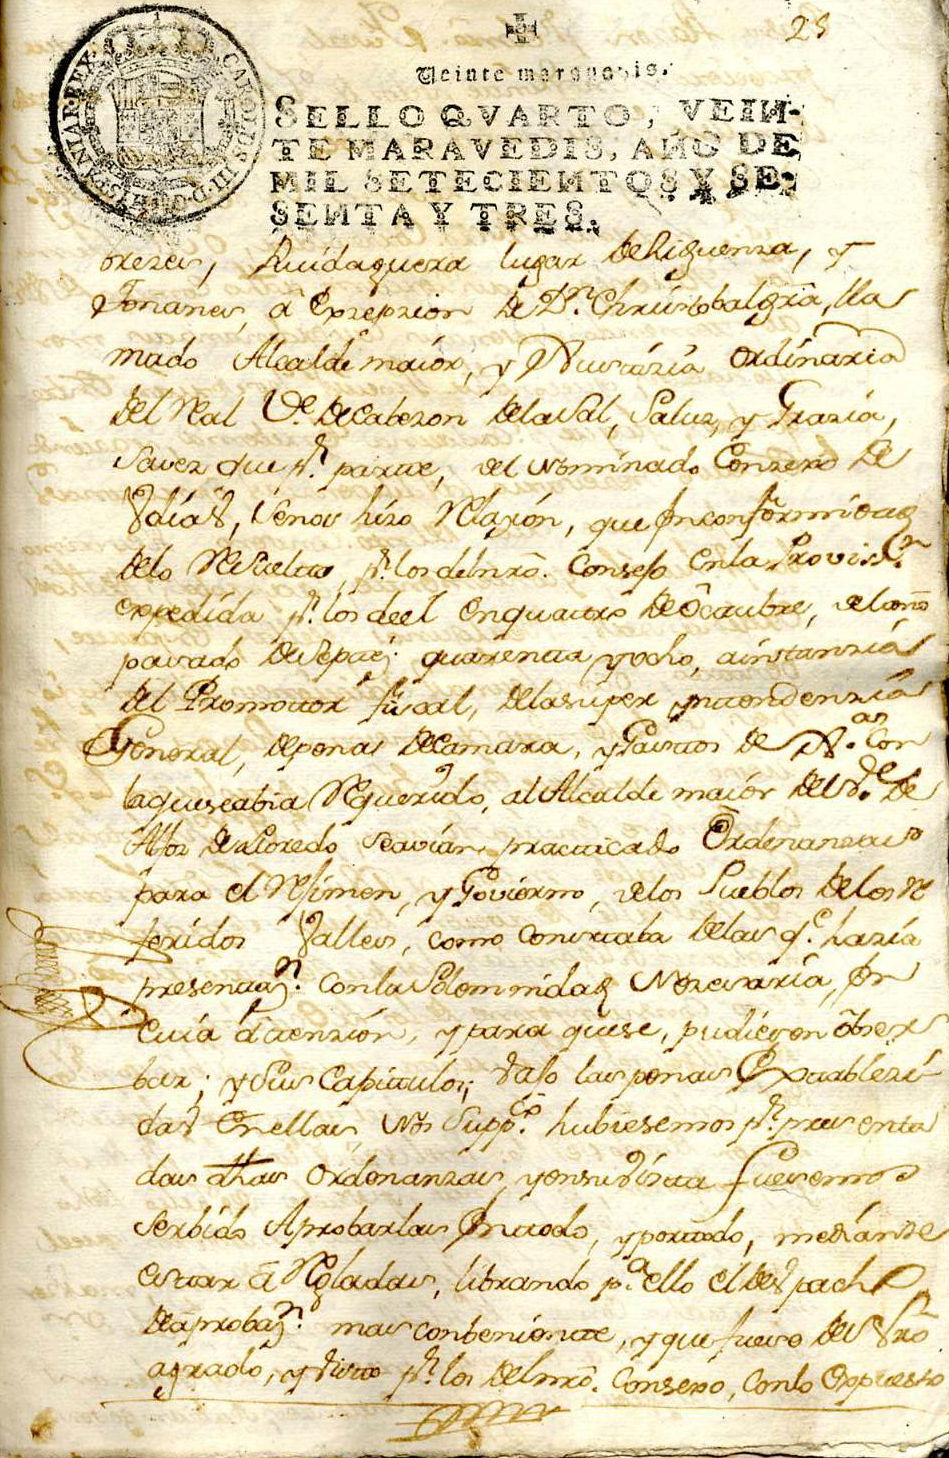 28
Veinte maravedis.
CAROLUS III D. G. HISPANIAR. REX
SELLO QVARTO, VEIN-
TE MARAVEDIS, AÑO DE
MIL SETECIENTOS Y SE-
SENTA Y TRES.
brezes, Ruidaguera lugar de Riguenza, y
Tonanes, â Exsepzion de Dn. Christobal grâ, lla
mado Alcalde maior, y Justizia ordinaria
del Real Ve. de Cabezon de la Sal, Salud, y Grazia,
Saved que pr. parte, del nominado Conzexo de
Vdias, Senos hizo Relazion, que en conformidad
delo Resuelto, pr. los del nro. Consejo en la Provison.
expedida pr. los de el en quatro de Octubre, del año
pasado de Setezs. quarenta y ocho, a instanzia
del Promotor fiscal, de la super yntendenzia
General, de penas de Camara, y Gastos de Jan. con
la que se abia Requerido, al Alcalde maior del Ve. de
Alfoz de Lloredo se avian practicado Ordenanzas
para el Rejimen, y Govierno, de los Pueblos de los Re
feridos Valles, como constaba de las qe. hazia
presentazn. con la Solemnidad Nezesaria, En
Cuia atenzion, y para que se, pudiesen obser
bar; y sus Capitulos, vajo las penas Establezi
das En ellas, Nos Suppco. hubiesemos pr. presenta
das dhas Ordenanzas, y en su vista fuesemos
Serbido Aprobarlas En todo, y por todo, mediante
estar â Regladas, librando pa. ello el Despacho
de aprobazn. mas conbeniente, y que fuese de Vro
agrado, y Visto pr. los del nro. Consexo, con lo Expuesto